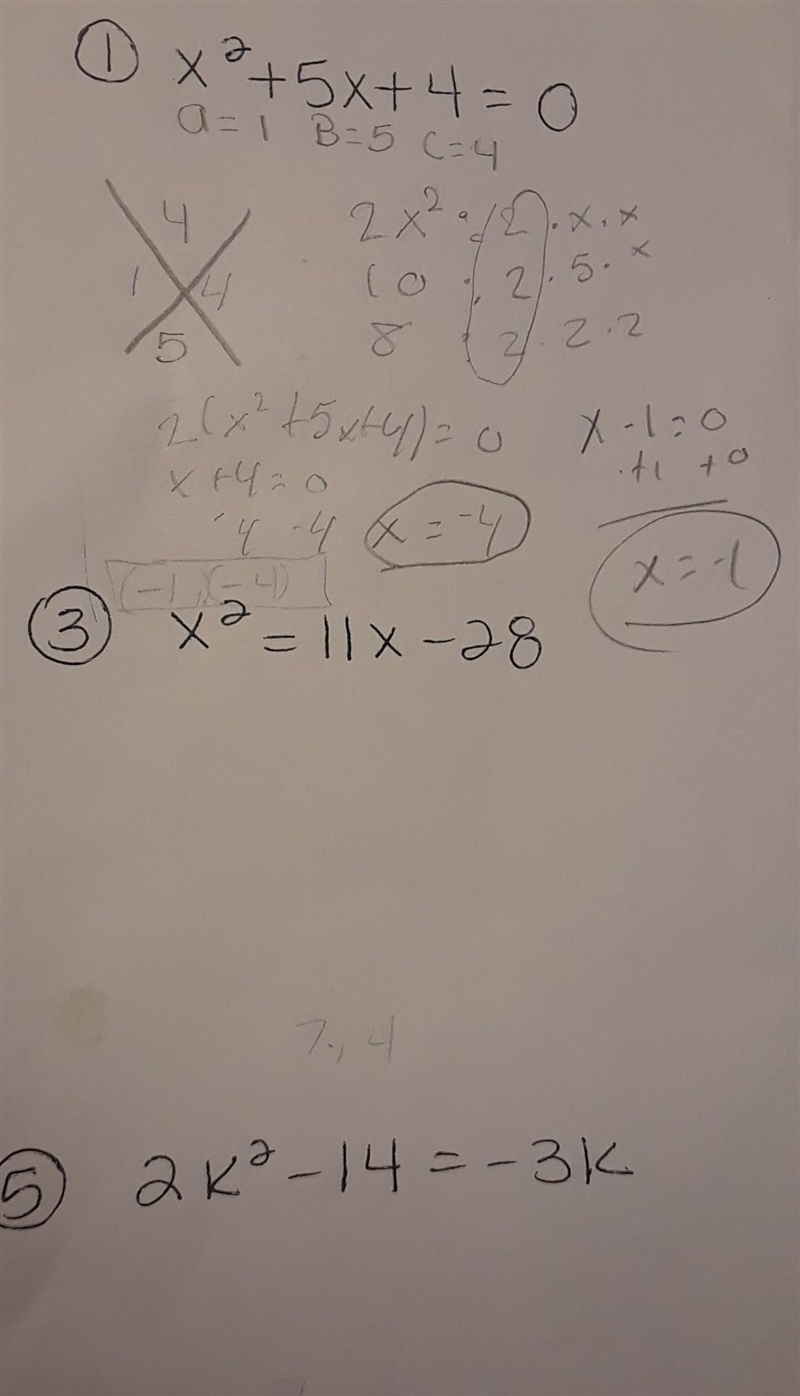 ① x²+5x+4=0
a=1 B=5 C=4
4
1 4
5
2x² : 2 · x · x
10 : 2 · 5 · x
8 2 · 2 · 2
2(x²+5x+4)=0
x+4=0
-4 -4 x=-4
x-1=0
+1 +0
x=-1
(-1)(-4)
③ x²=11x-28
7, 4
⑤ 2k²-14=-3k